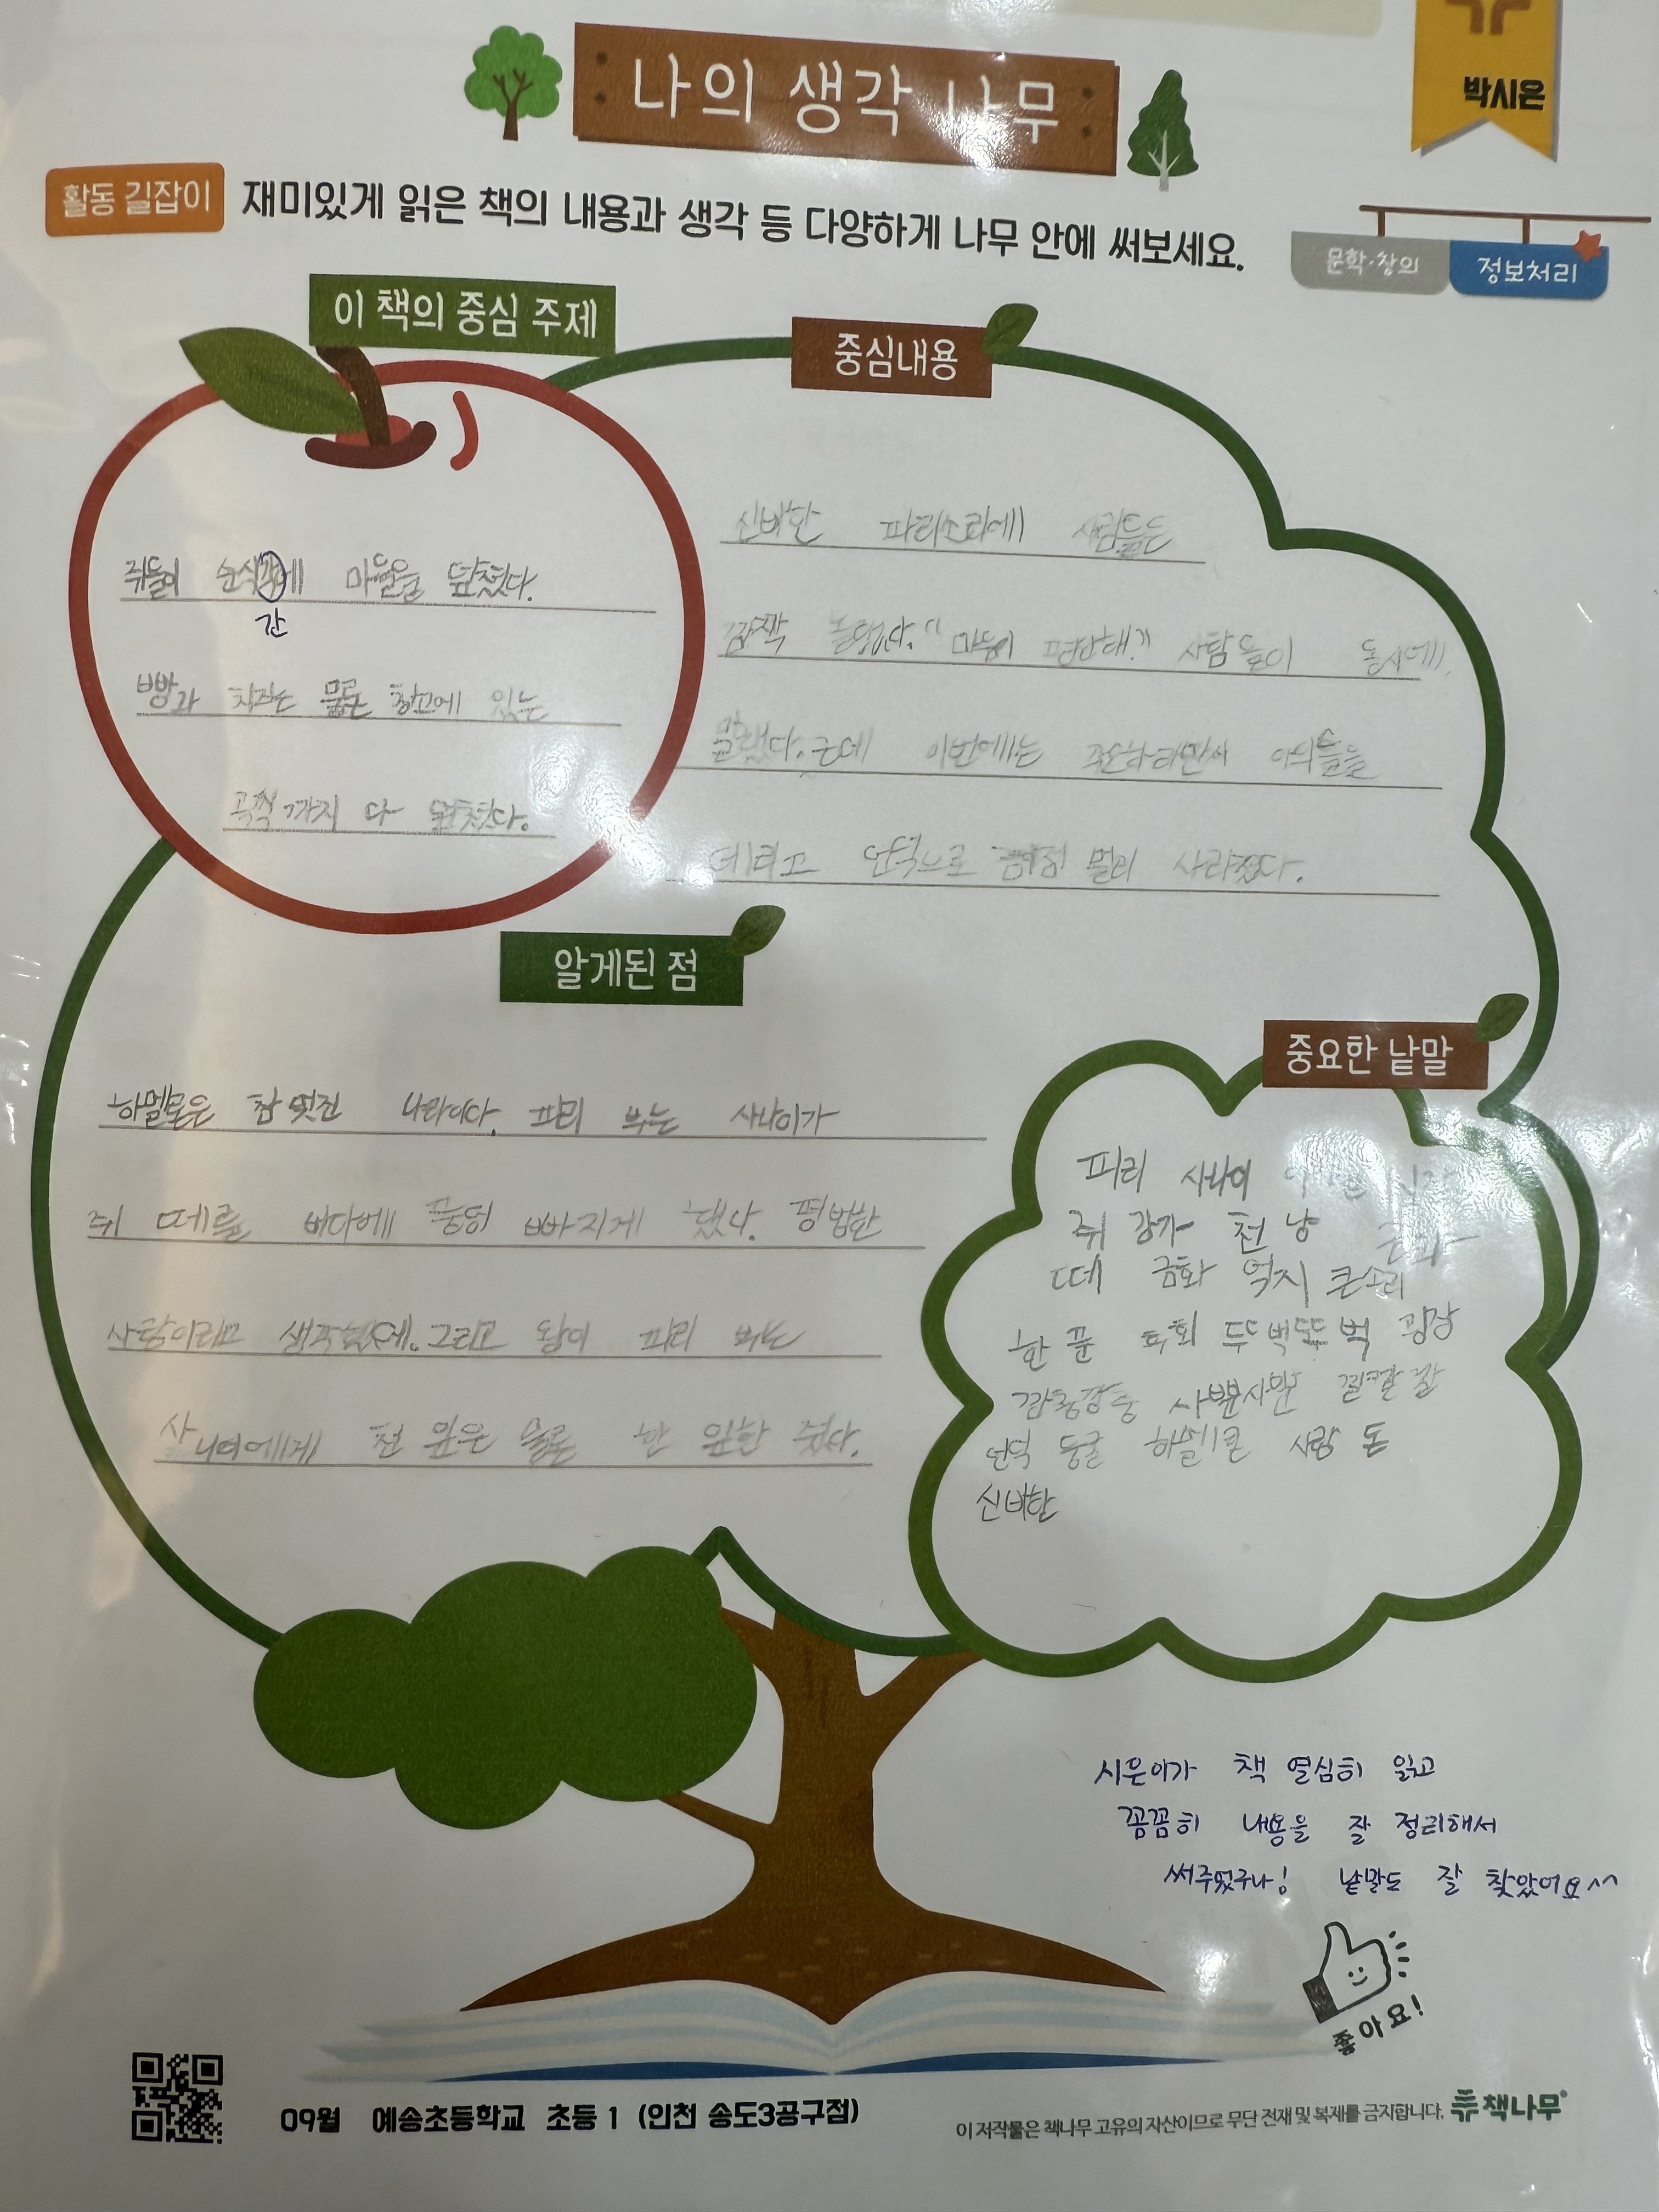 박시은
나의 생각 나무
활동 길잡이 재미있게 읽은 책의 내용과 생각 등 다양하게 나무 안에 써보세요.
문학·창의 정보처리
이 책의 중심 주제
쥐들이 순식에 마을을 덮쳤다.
간
빵과 치즈는 물론 창고에 있는
곡식까지 다 덮쳤다.
중심내용
신비한 피리소리에 사람들은
깜짝 놀랐다. "마음이 편안해." 사람들이 동시에
말했다. 근데 이번에는 아이들을
데리고 언덕으로 멀리 사라졌다.
알게된 점
하멜른은 참 멋진 나라이다. 피리 부는 사나이가
쥐 떼를 바다에 풍덩 빠지게 했다. 평범한
사람이라고 생각했는데. 그리고 왕이 피리 부는
사나이에게 천 냥은 물론 한 냥만 줬다.
중요한 낱말
피리 사나이
쥐 강가 천 냥
떼 금화 억지 큰소리
한 푼 두벅뚜벅 광장
깡충깡충 사뿐사뿐 깔깔깔
언덕 동굴 하멜른 사람 돈
신비한
시은이가 책 열심히 읽고
꼼꼼히 내용을 잘 정리해서
써주었구나! 낱말도 잘 찾았어요^^
좋아요!
09월 예송초등학교 초등 1 (인천 송도3공구점)
이 저작물은 책나무 고유의 자산이므로 무단 전재 및 복제를 금지합니다. 책나무